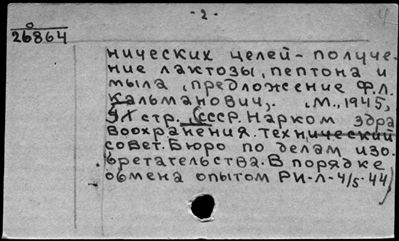 - 2 -
4
0
26864
нических целей - получе-
ние лактозы, пептона и
мыла, (предложение Ф.Л.
Кальманович). М., 1945,
стр. (СССР. Нарком здра
воохранения. технический
совет. Бюро по делам изо-
бретательства. В порядке
обмена опытом РИ-Л-4/5-44)